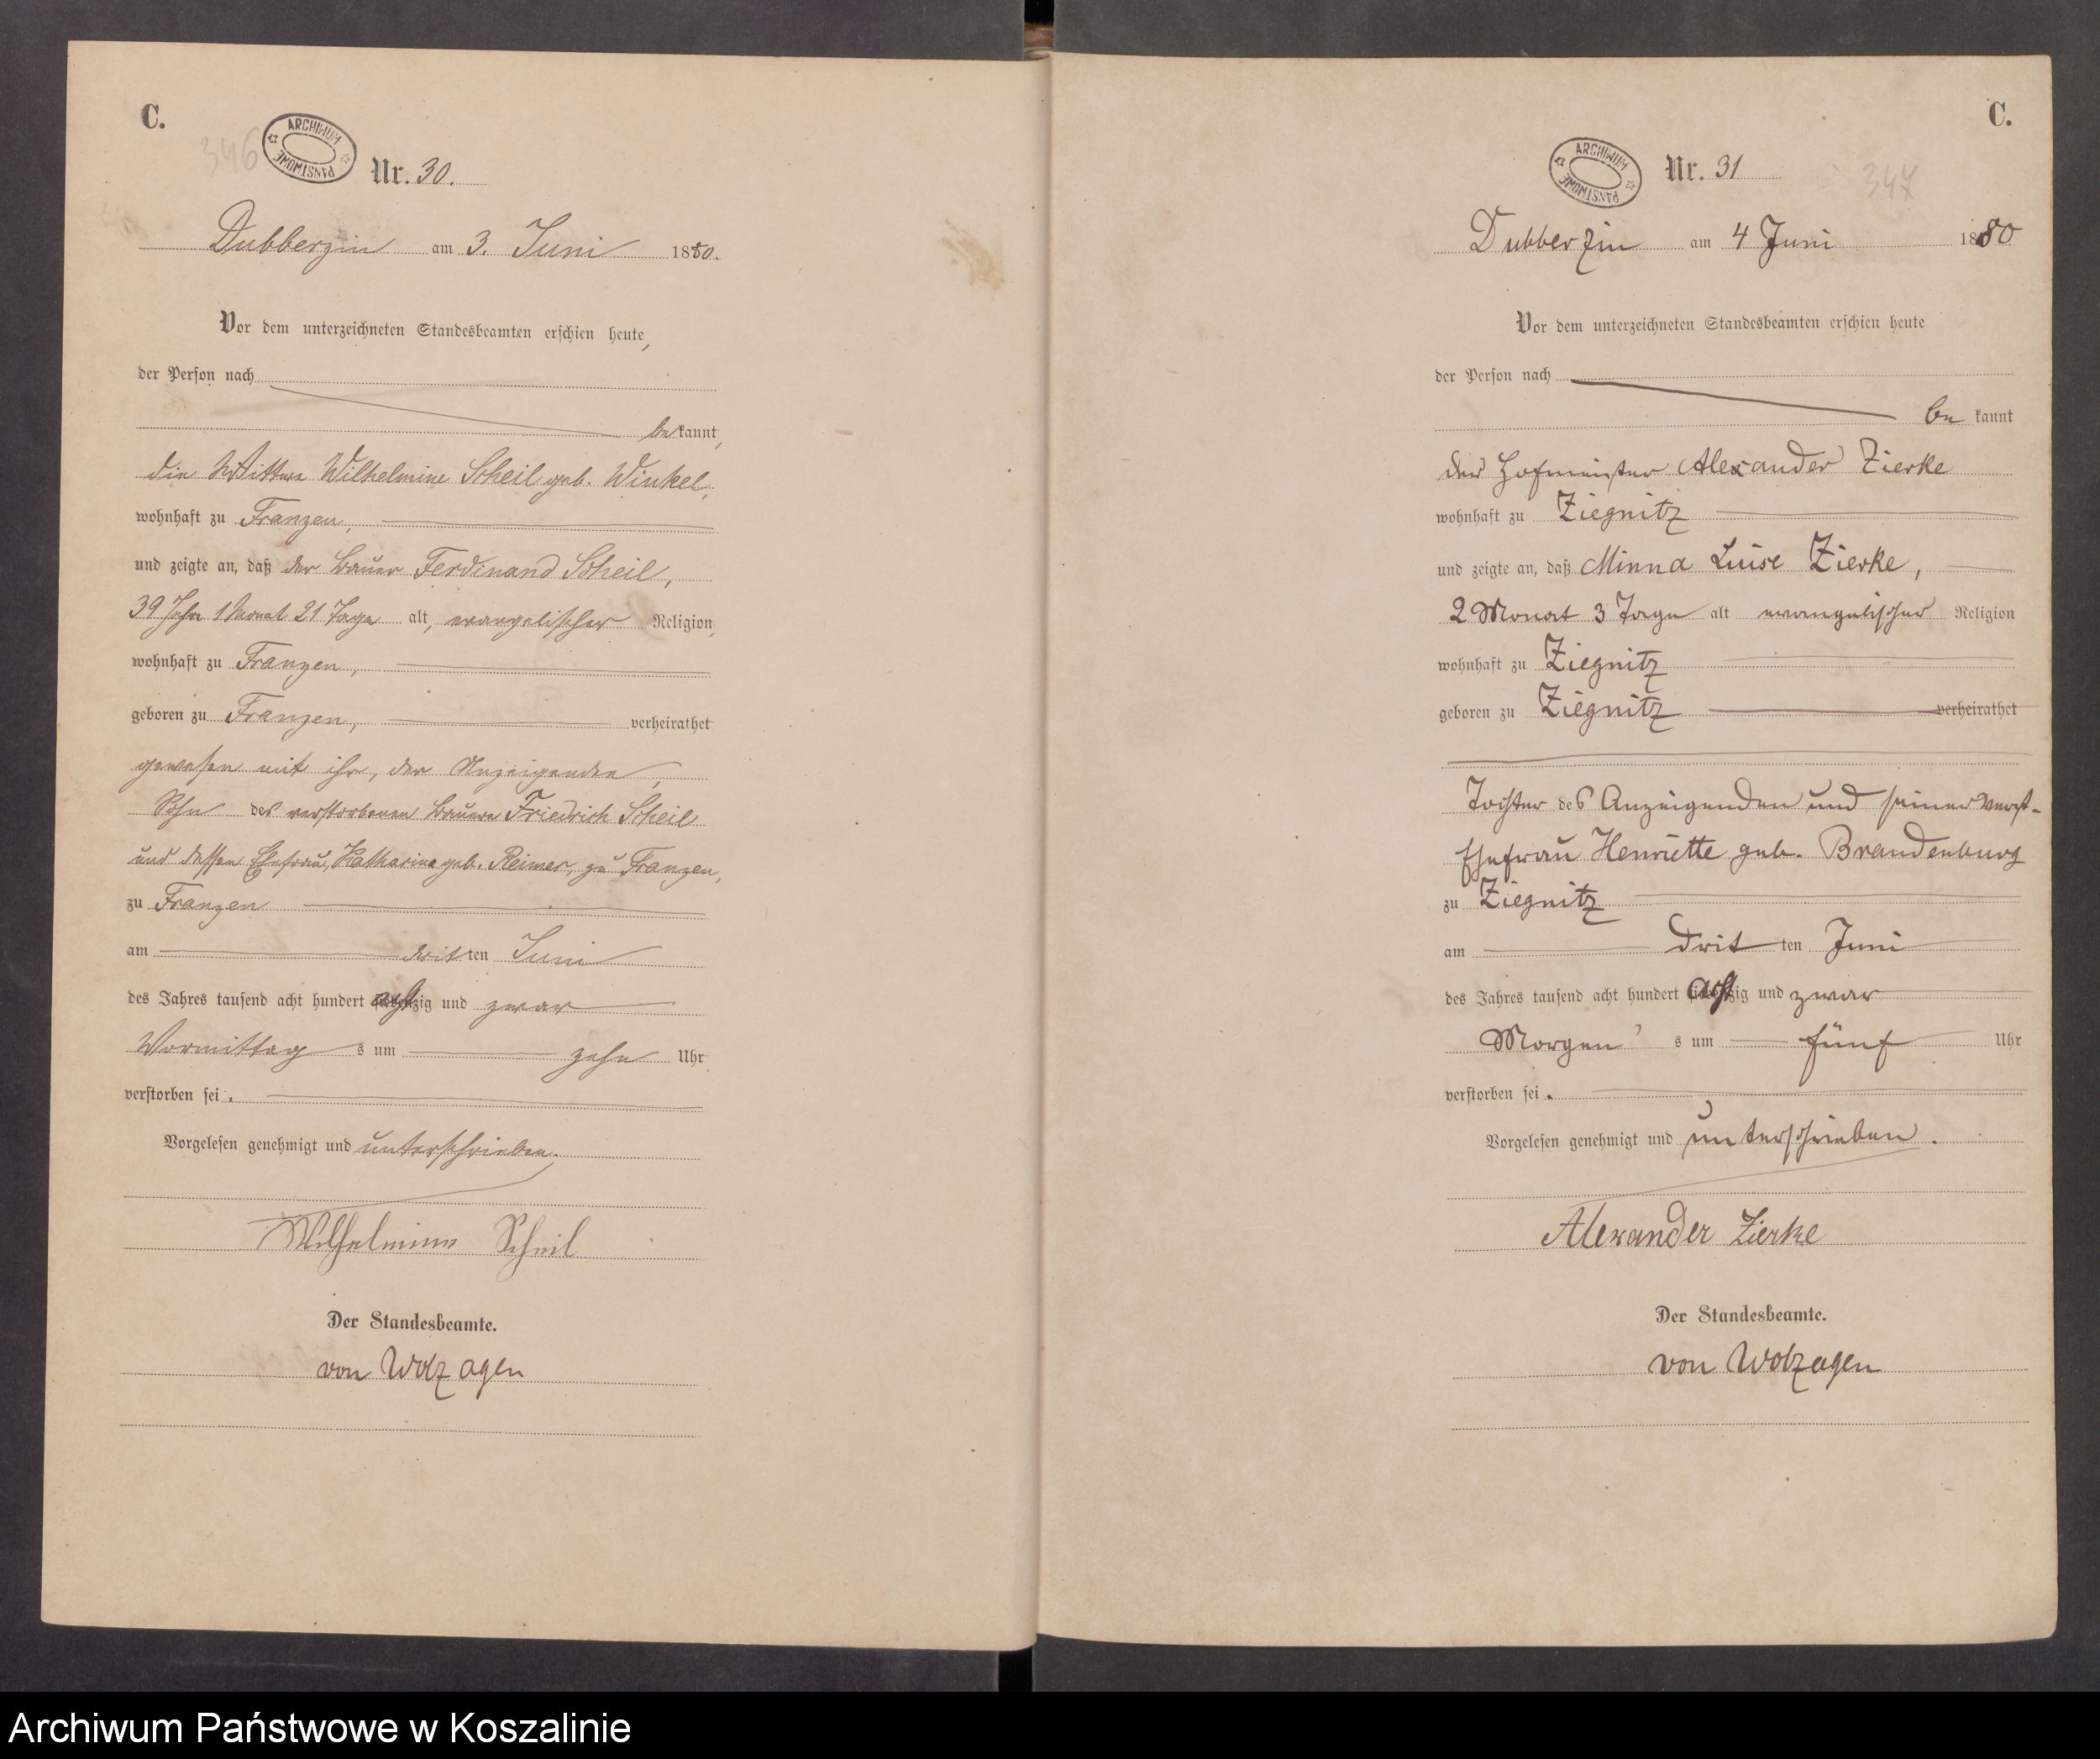 C.
346
ARCHIWUM PAŃSTWOWE
Nr. 30.
Dubberzin am 3. Juni 1880.
Vor dem unterzeichneten Standesbeamten erschien heute,
der Person nach
be kannt,
die Wittwe Wilhelmine Scheil geb. Winkel,
wohnhaft zu Franzen,
und zeigte an, daß der Bauer Ferdinand Scheil,
39 Jahr 1 Monat 21 Tage alt, evangelischer Religion,
wohnhaft zu Franzen,
geboren zu Franzen, verheirathet
gewesen mit ihr, der Anzeigenden,
Sohn des verstorbenen Bauern Friedrich Scheil
und dessen Ehefrau, Katharina geb. Reimer, zu Franzen,
zu Franzen
am dritten Juni
des Jahres tausend acht hundert achtzig und zwar
Vormittag s um zehn Uhr
verstorben sei.
Vorgelesen genehmigt und unterschrieben.
Wilhelmine Scheil
Der Standesbeamte.
von Wolzogen
C.
ARCHIWUM PAŃSTWOWE
Nr. 31
347
Dubberzin am 4 Juni 1880
Vor dem unterzeichneten Standesbeamten erschien heute
der Person nach
be kannt
der Hofmeister Alexander Zierke
wohnhaft zu Ziegnitz
und zeigte an, daß Minna Luise Zierke,
2 Monat 3 Tage alt evangelischer Religion
wohnhaft zu Ziegnitz
geboren zu Ziegnitz verheirathet
Tochter des Anzeigenden und seiner verst-
Ehefrau Henriette geb. Brandenburg
zu Ziegnitz
am drit ten Juni
des Jahres tausend acht hundert achtzig und zwar
Morgen s um fünf Uhr
verstorben sei.
Vorgelesen genehmigt und unterschrieben.
Alexander Zierke
Der Standesbeamte.
von Wolzogen
Archiwum Państwowe w Koszalinie